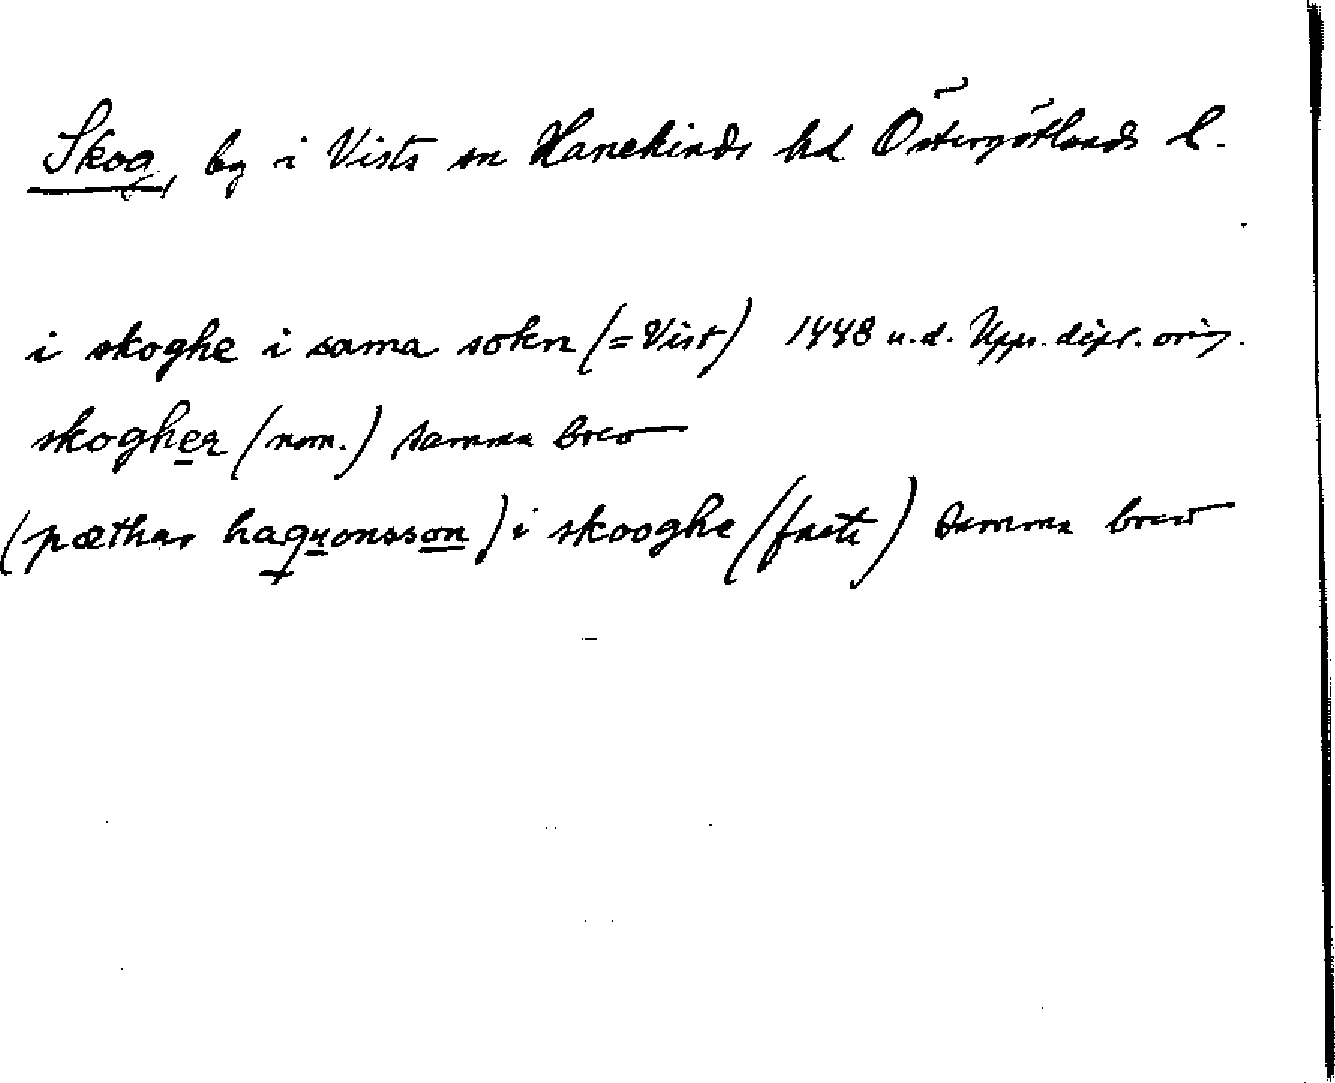 Skog, by i Vists sn Hanekinds hd Östergötlands l.
i skoghe i sama sokn (=Vist) 1448 u.d. Upps. dipl. orig.
skogher (nom.) samma brev
(pæthar haquonsson) i skooghe (faste) samma brev